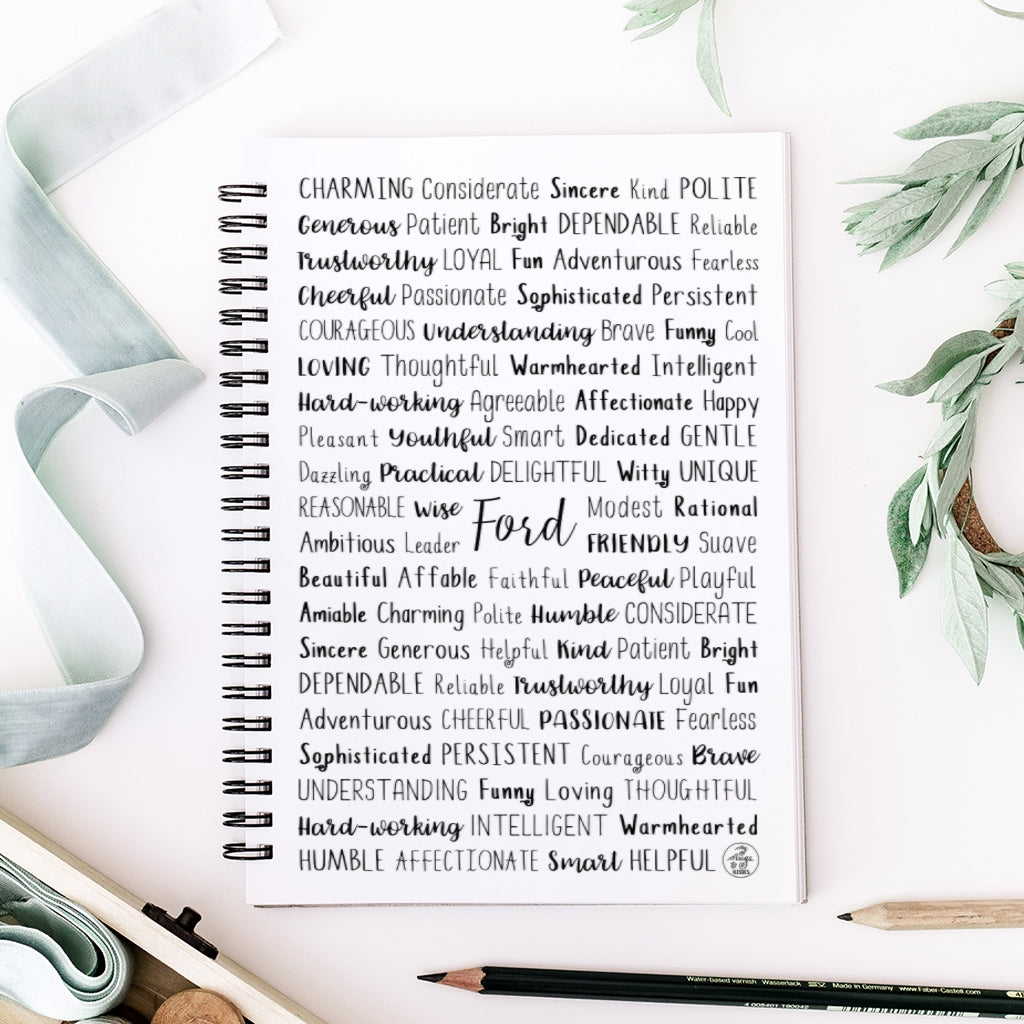 CHARMING Considerate Sincere Kind POLITE
Generous Patient Bright DEPENDABLE Reliable
Trustworthy LOYAL Fun Adventurous Fearless
Cheerful Passionate Sophisticated Persistent
COURAGEOUS Understanding Brave Funny Cool
LOVING Thoughtful Warmhearted Intelligent
Hard-working Agreeable Affectionate Happy
Pleasant Youthful Smart Dedicated GENTLE
Dazzling Practical DELIGHTFUL Witty UNIQUE
REASONABLE Wise Modest Rational
Ford
Ambitious Leader FRIENDLY Suave
Beautiful Affable Faithful Peaceful Playful
Amiable Charming Polite Humble CONSIDERATE
Sincere Generous Helpful Kind Patient Bright
DEPENDABLE Reliable Trustworthy Loyal Fun
Adventurous CHEERFUL PASSIONATE Fearless
Sophisticated PERSISTENT Courageous Brave
UNDERSTANDING Funny Loving THOUGHTFUL
Hard-working INTELLIGENT Warmhearted
HUMBLE AFFECTIONATE Smart HELPFUL
KISSES
Water-based varnish Wasserlack Made in Germany www.Faber-Castell.com
4 005401 190042